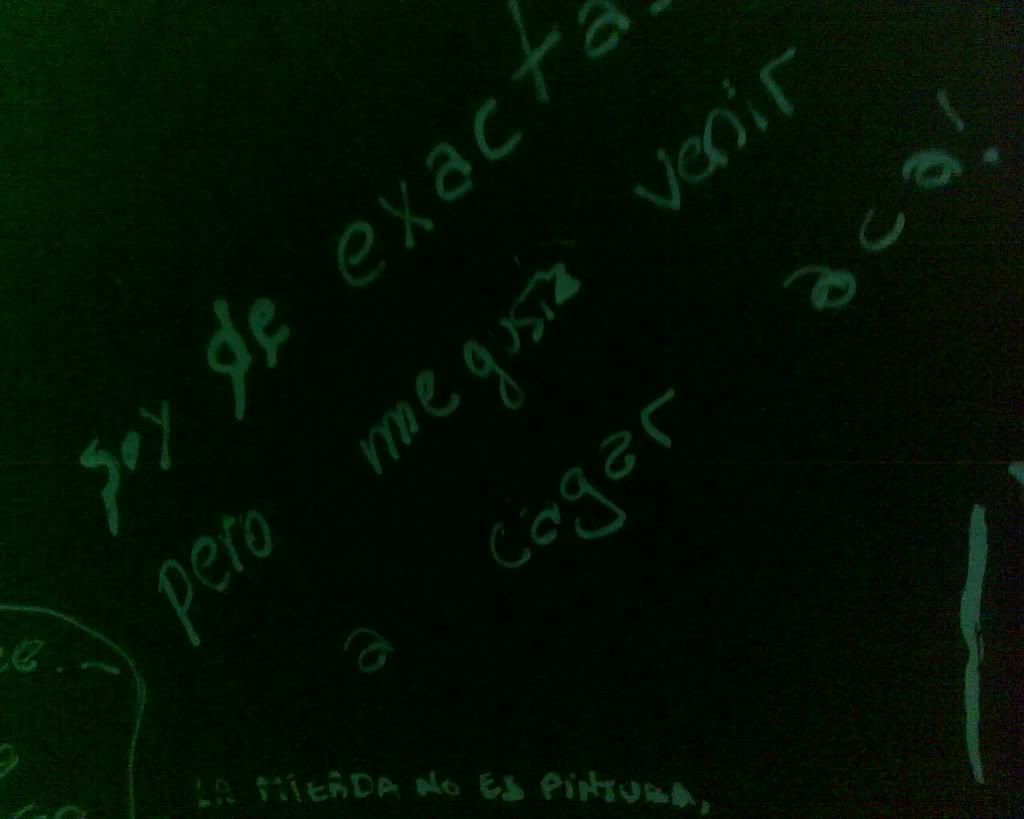 soy de exacta
pero me gusta venir
a cagar acá!
LA MIERDA NO ES PINTURA,